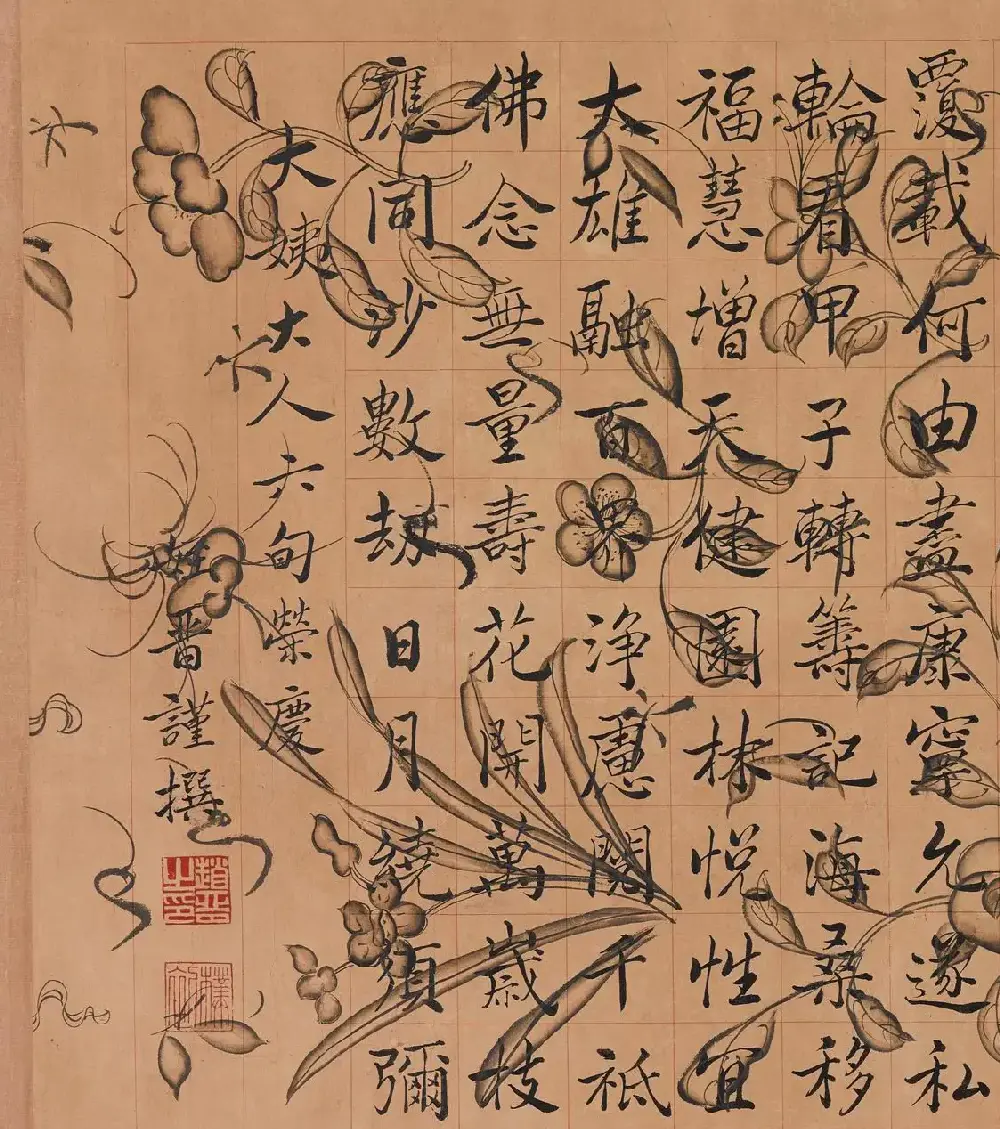 覆載何由盡康寧允遂私
輪看甲子轉籌記海桑移
福慧增天健園林悅性宜
大雄融百界淨慮閱千祇
佛念無量壽花開萬歲枝
應同沙數劫日月繞須彌
大姨大人六旬榮慶
姪晋謹撰
趙晋之印